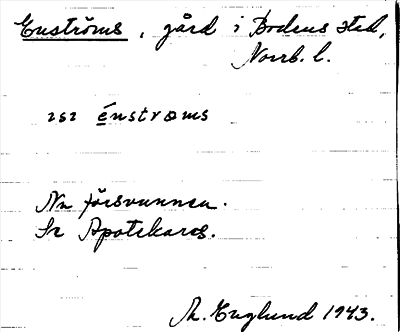 Enströms, gård i Bodens stad,
Norrb. l.
énstroms
Nu försvunnen.
Se Apotekares.
M. Englund 1943.